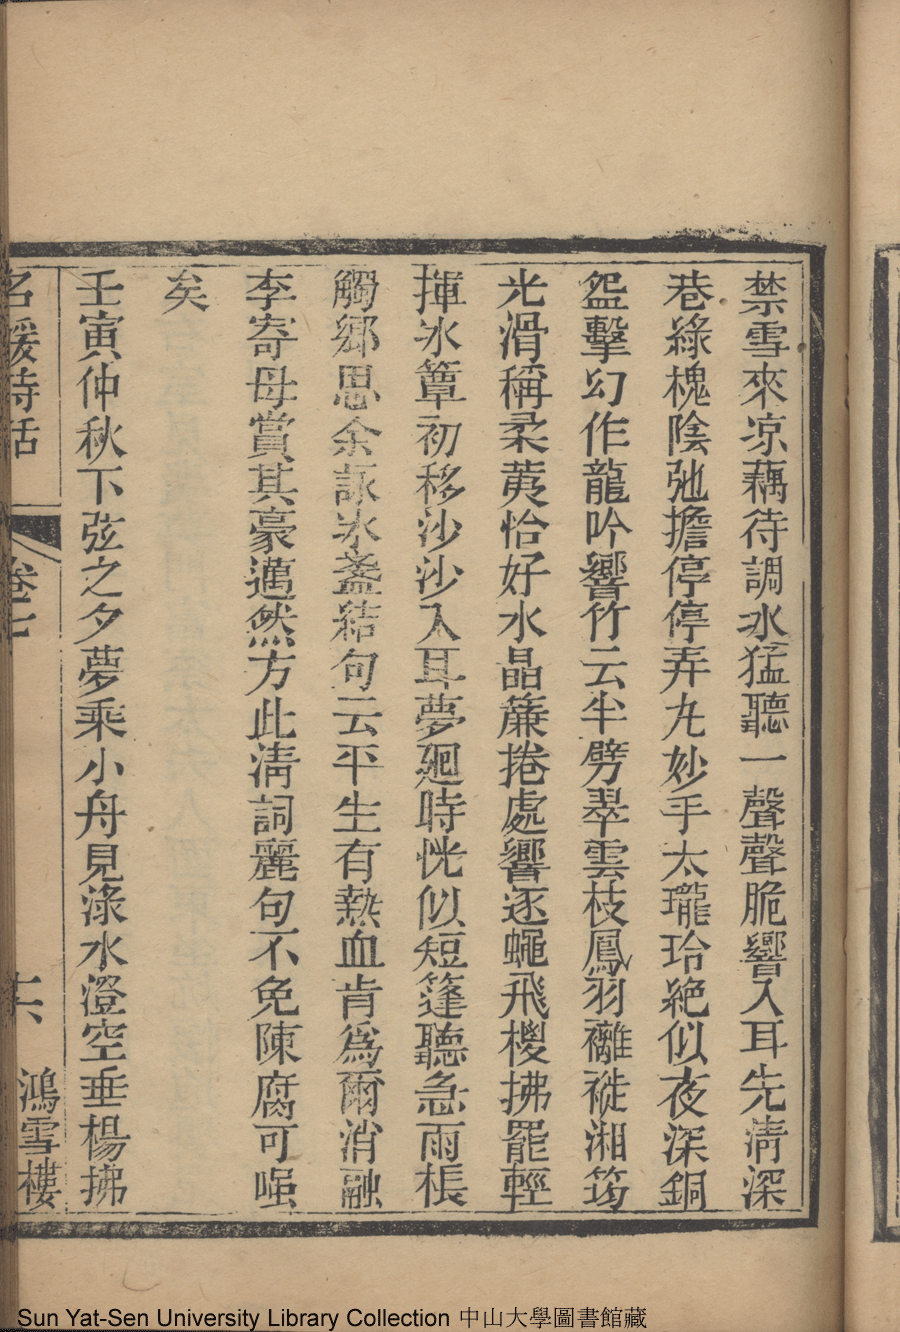 禁雪來凉藕待調冰猛聽一聲聲脆響入耳先清深
巷綠槐陰弛擔停停弄丸妙手太瓏玲絕似夜深銅
盌擊幻作龍吟響竹云半劈翠雲枝鳳羽褵褷湘筠
光滑稱柔荑恰好水晶簾捲處響逐蠅飛櫻拂罷輕
揮冰簟初移沙沙入耳夢廻時恍似短篷聽急雨棖
觸鄉思余詠冰盞結句云平生有熱血肯爲爾消融
李寄母賞其豪邁然方此清詞麗句不免陳腐可嗤
矣
壬寅仲秋下弦之夕夢乘小舟見淥水澄空垂楊拂
名媛詩話 卷七 十六 鴻雪樓
Sun Yat-Sen University Library Collection 中山大學圖書館藏